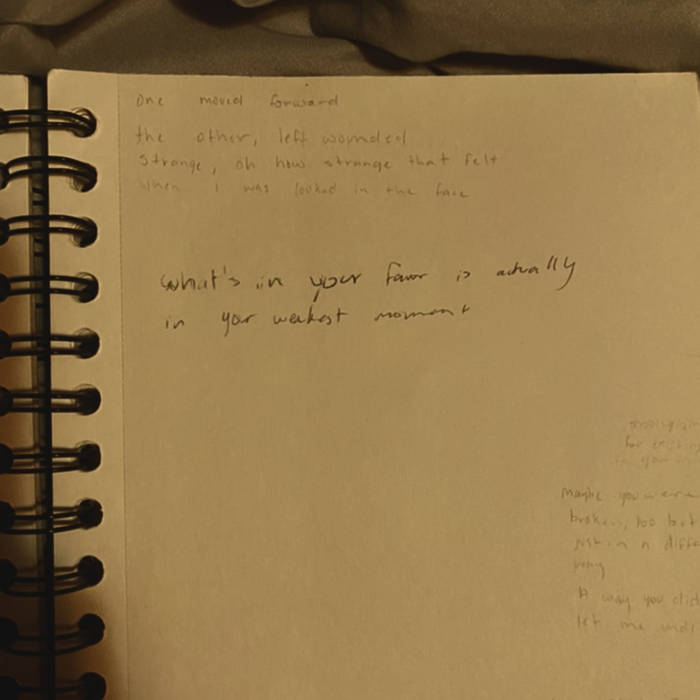 One moved forward
the other, left wounded
strange, oh how strange that felt
when I was looked in the face
what's in your favor is actually
in your weakest moment
for existing
in your
Maybe you were
broken, too but
just in a diffe
way
A way you did
let me